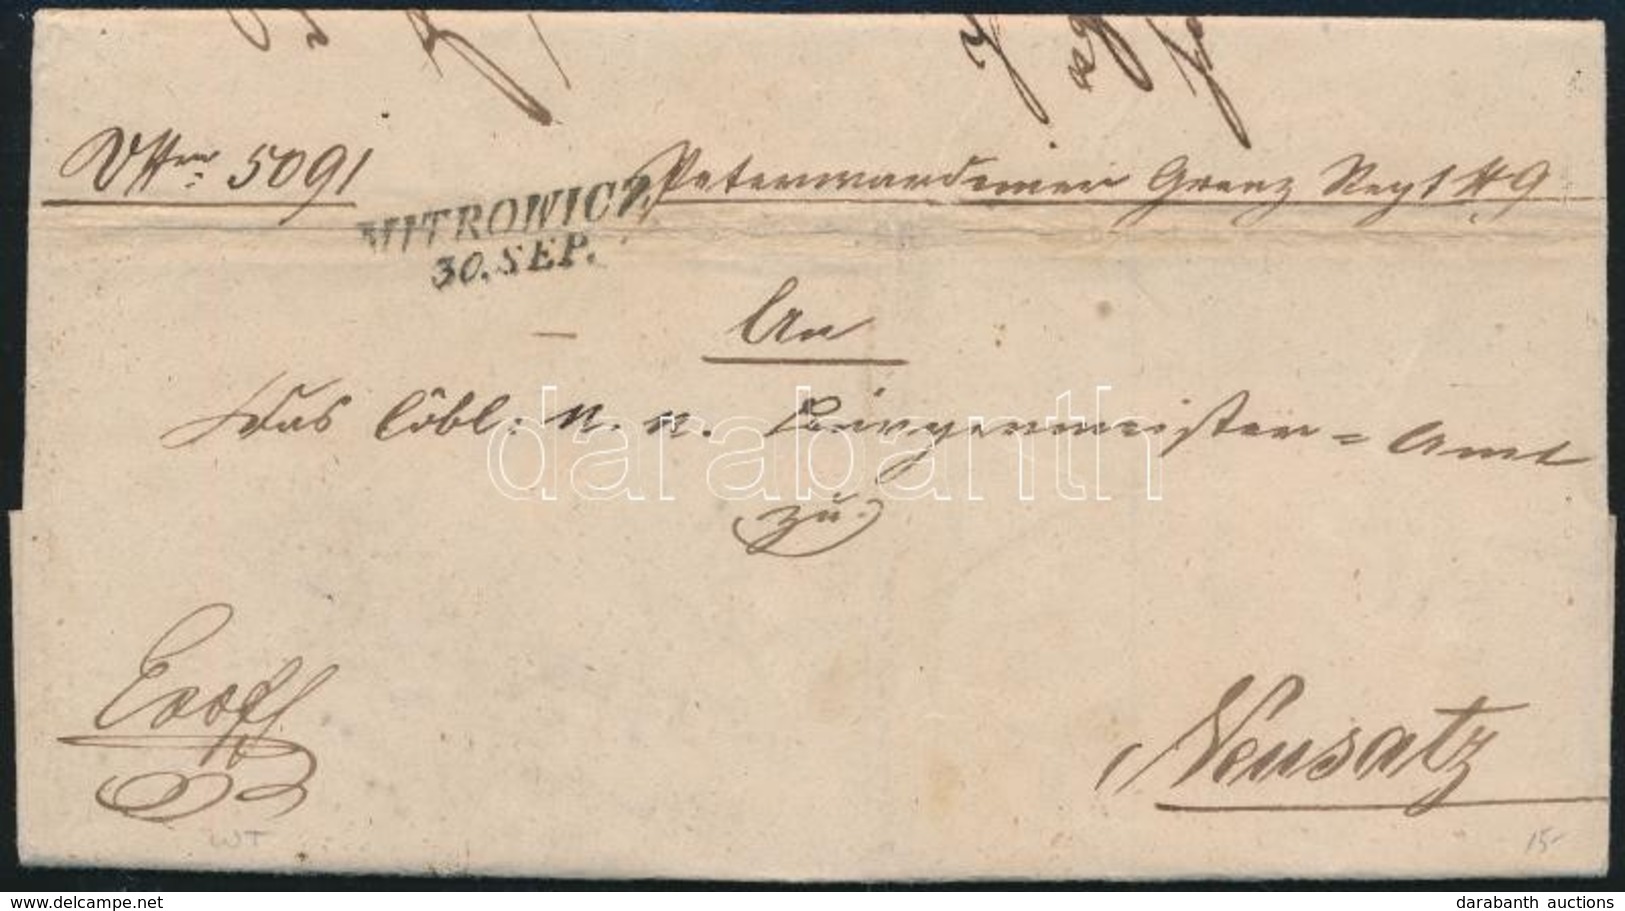 5091
Peterwardeiner Grenz Regt # 9
MITROWICZ
30. SEP.
An
Das Löbl: k. k. Bürgermeister = Amt
zu
Exoff
Neusatz
WT
15-
darabanth
delcampe.net
darabanth auctions